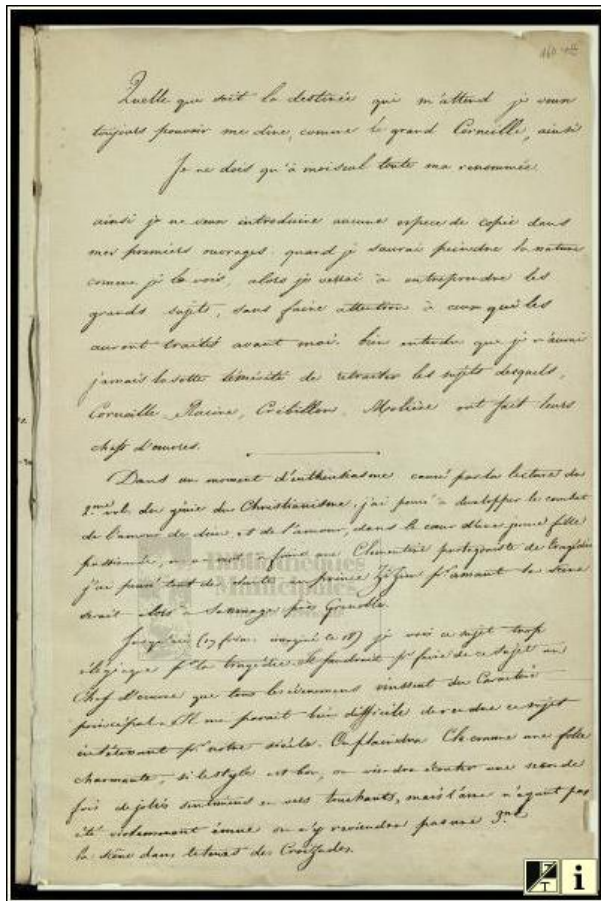 Quelle que soit la destinée qui m'attend je veux
toujours pouvoir me dire, comme le grand Corneille, ainsi
Je ne dois qu'à moi seul toute ma renommée.
ainsi je ne veux introduire aucune espece de copie dans
mes premiers ouvrages. quand je saurai peindre la nature
comme je la vois, alors je verrai à entreprendre les
grands sujets, sans faire attention à ceux qui les
auront traités avant moi. bien entendu que je n'aurai
jamais la sotte témérité de retraiter les sujets desquels,
Corneille, Racine, Crébillon, Molière ont fait leurs
chefs d'œuvres.
Dans un moment d'enthousiasme causé par la lecture du
2.me vol. du génie du Christianisme, j'ai pensé à developper le combat
de l'amour de dieu et de l'amour, dans le cœur d'une jeune fille
passionnée, faire une Clementine protagoniste de tragédie
j'ai pensé tout de suite au prince Zizim pr amant la scène
serait alors à Sassenage près Grenoble.
Jusqu'ici (19 frim. corrigé le 18) je vois ce sujet trop
élégiaque pr la tragédie. Il faudrait pr faire de ce sujet un
Chef d'œuvre que tous les évènemens vinssent du Caractère
principal. Il me parait bien difficile de rendre ce sujet
intéressant pr notre siècle. On plaindra Cle comme une folle
charmante, si le style est bon, on viendra écouter une seconde
fois de jolis sentimens en vers touchants, mais l'âme n'ayant pas
été violemment émue on n'y reviendra pas une 3.me
la scène dans le tems des Croizades.
Bibliothèques
Municipales
Grenoble